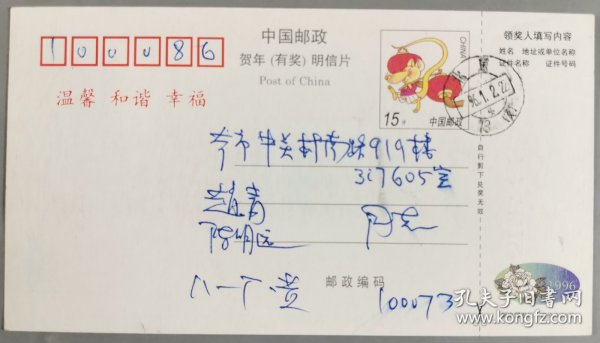 100086
中国邮政
贺年(有奖)明信片
Post of China
温馨 和谐 幸福
CHINA
15分
中国邮政
领奖人填写内容
姓名 地址或单位名称
证件名称 证件号码
北京
96.1.2.22
自行剪下兑奖无效
本市中关村南路919楼
317605室
赵青
陈明远 同志
八一厂 萱
邮政编码
100073
1996
孔夫子旧书网
www.kongfz.com